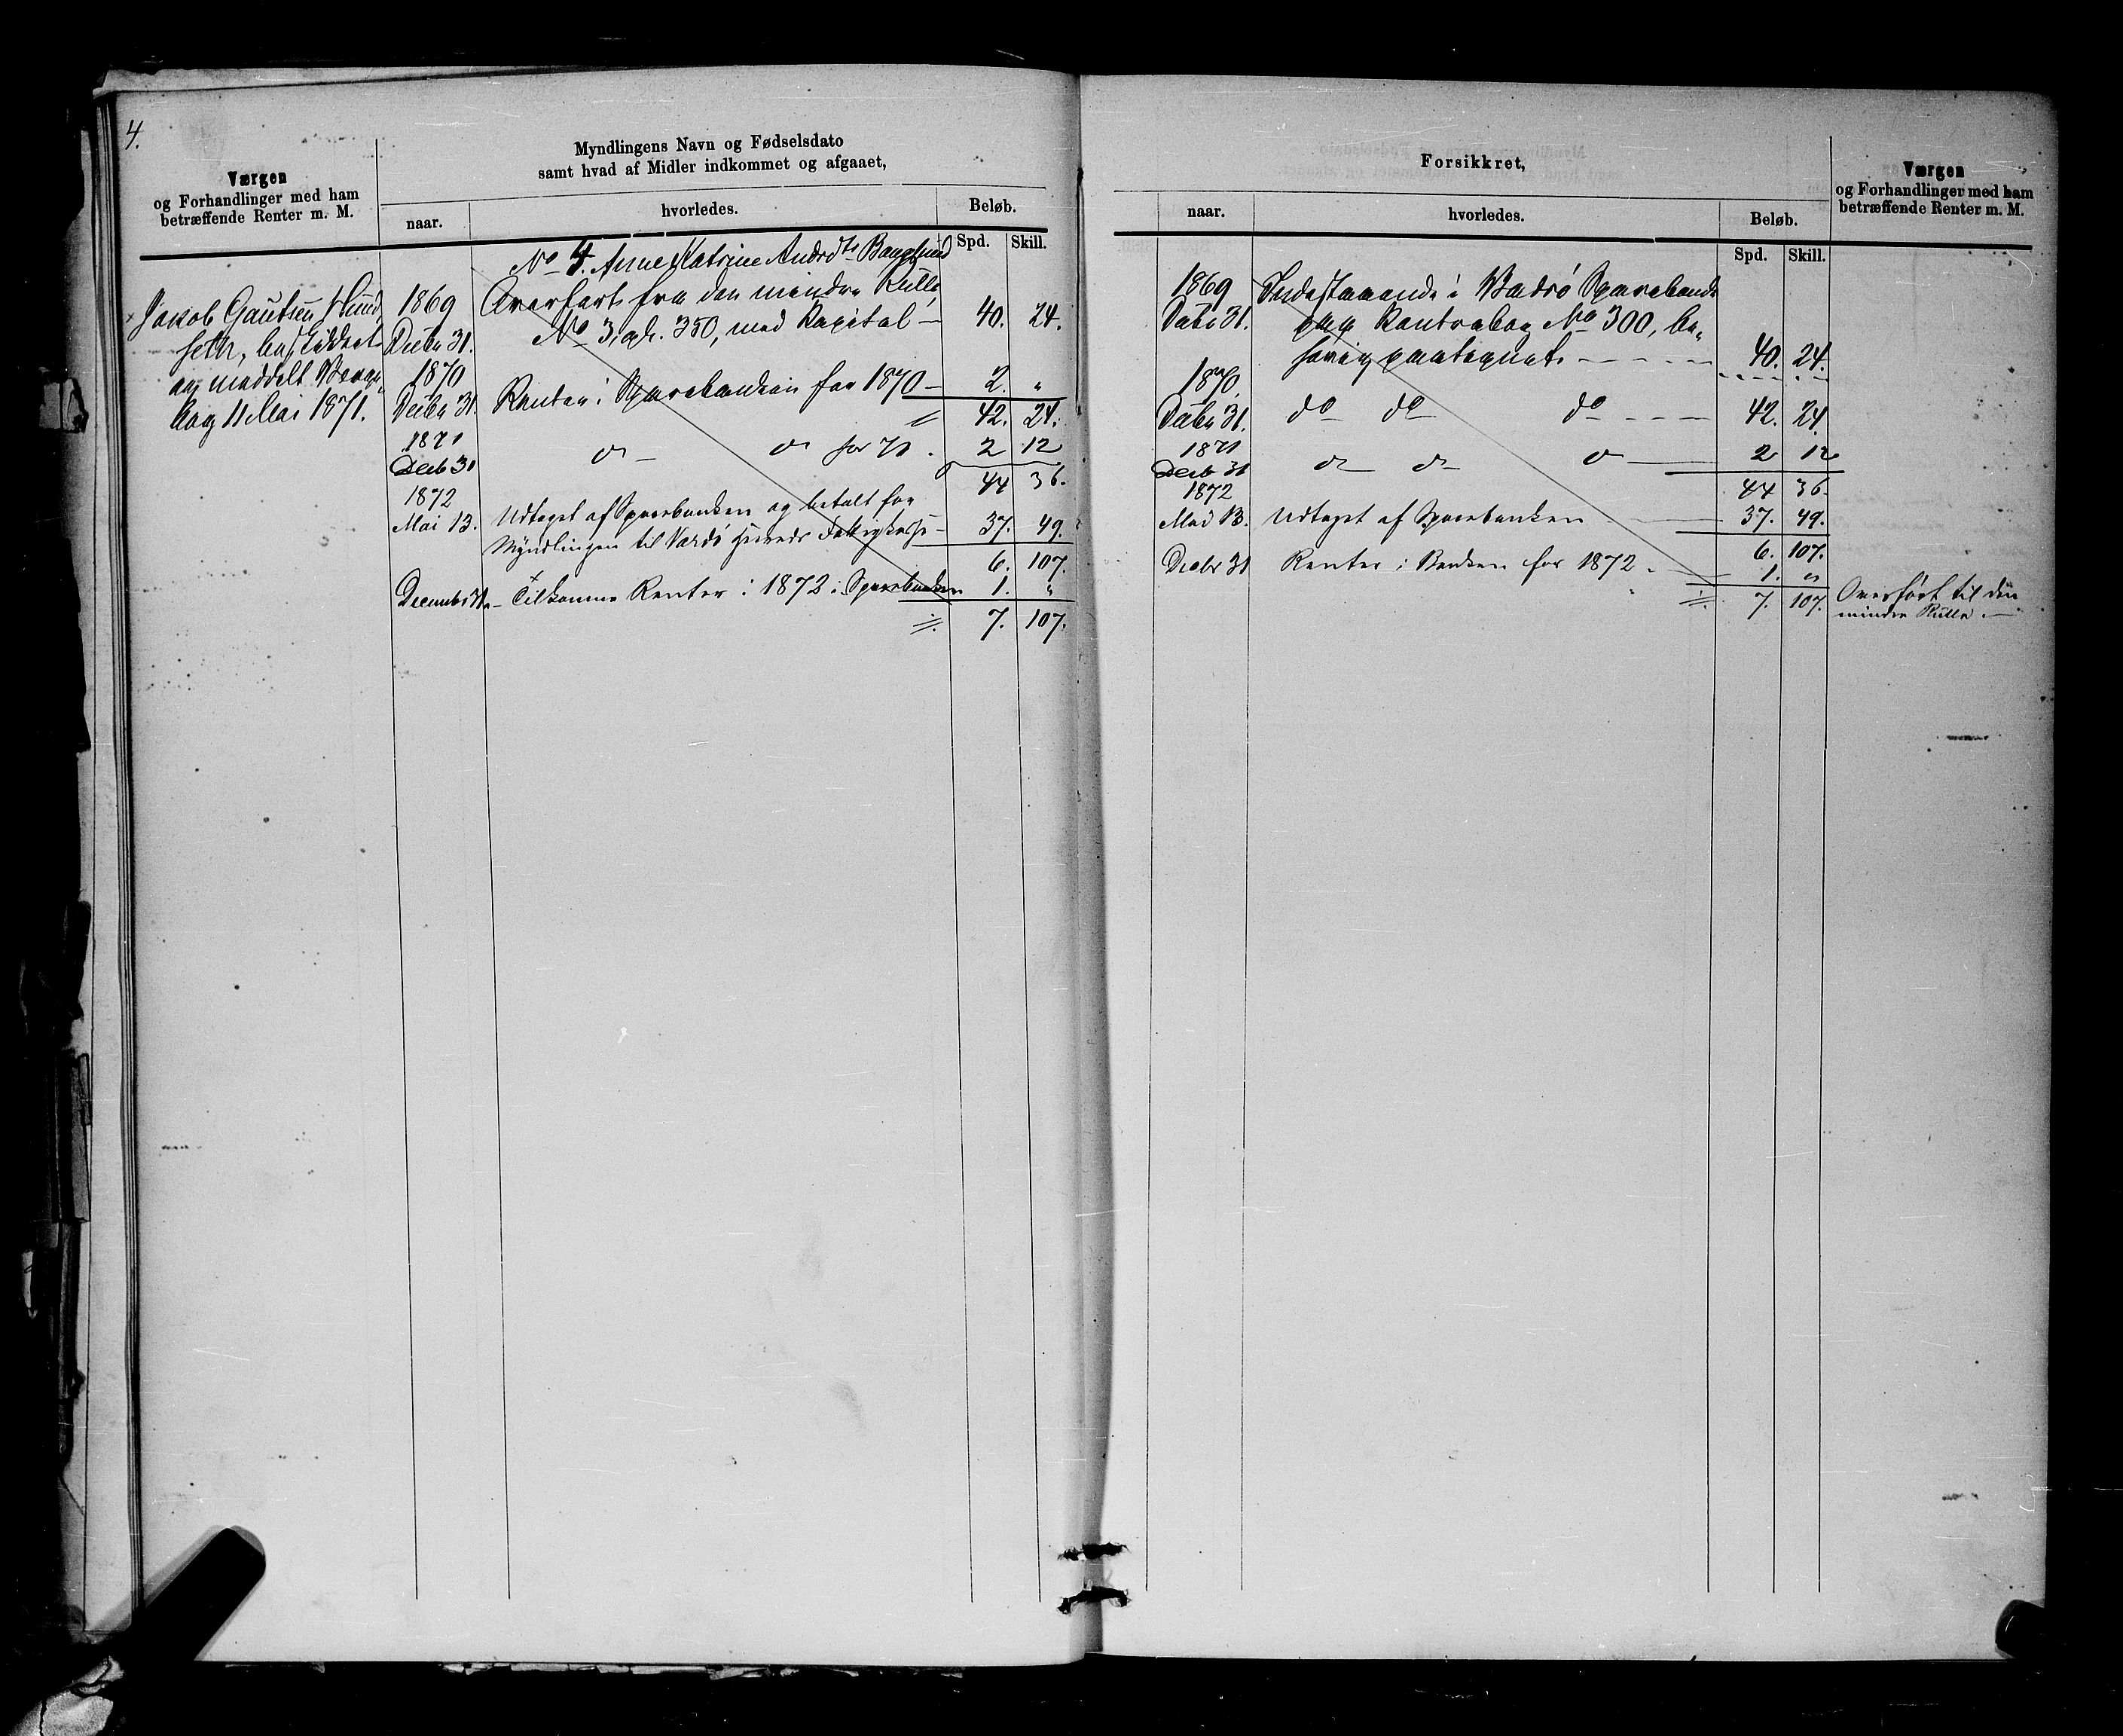 4.
Værgen
og Forhandlinger med ham
betræffende Renter m. M.
Myndlingens Navn og Fødselsdato
samt hvad af Midler indkommet og afgaaet,
naar.
hvorledes.
Beløb.
Spd. Skill.
Jacob Gautsen
seth, beskikket
og meddelt Værge-
bog 11 Mai 1871.
No 4. Anne Katrine Andrdtr
1869 Overført fra den mindre Rulle
Decbr 31. No 3, 350, med Kapital — 40. 24.
1870
Decbr 31. Renter i Sparebanken for 1870 — 2. "
42. 24.
1871
Decb 31 do do for 71. 2 12
44 36.
1872
Mai 13. Udtaget af Sparebanken og betalt for
Myndlingen til Vardø Fattigkasse — 37. 49.
6. 107.
December 31. — Tilkomne Renter i 1872 i Sparebanken 1. "
7. 107.
Forsikkret,
naar.
hvorledes.
Beløb.
Spd. Skill.
Værgen
og Forhandlinger med ham
betræffende Renter m. M.
1869 Indestaaende i Vadsø Sparebank
Decbr 31. paa Contrabog No 300, be-
40. 24.
1870.
Decbr 31. do do do 42. 24.
1871
Decb 31 do do do 2 12
1872 44 36.
Mai 13. Udtaget af Sparebanken 37. 49.
6. 107.
Decbr 31 Renter i Banken for 1872. 1. "
7. 107. Overført til den
mindre Rulle. —